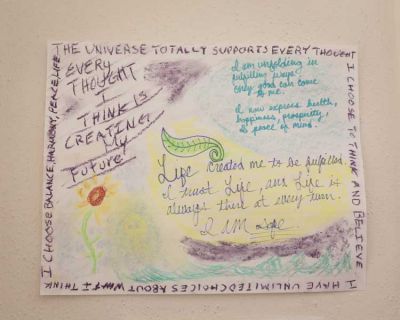 THE UNIVERSE TOTALLY SUPPORTS EVERY THOUGHT
I CHOOSE TO THINK AND BELIEVE
I HAVE UNLIMITED CHOICES ABOUT WHAT I THINK
I CHOOSE BALANCE, HARMONY, PEACE, LIFE
EVERY
THOUGHT
I
THINK IS
CREATING
My
FUTURE
I am unfolding in
fulfilling ways.
Only good can come
to me.
I now express health,
happiness, prosperity,
& peace of mind.
Life created me to be fulfilled.
I trust Life, and Life is
always there at every turn.
I AM